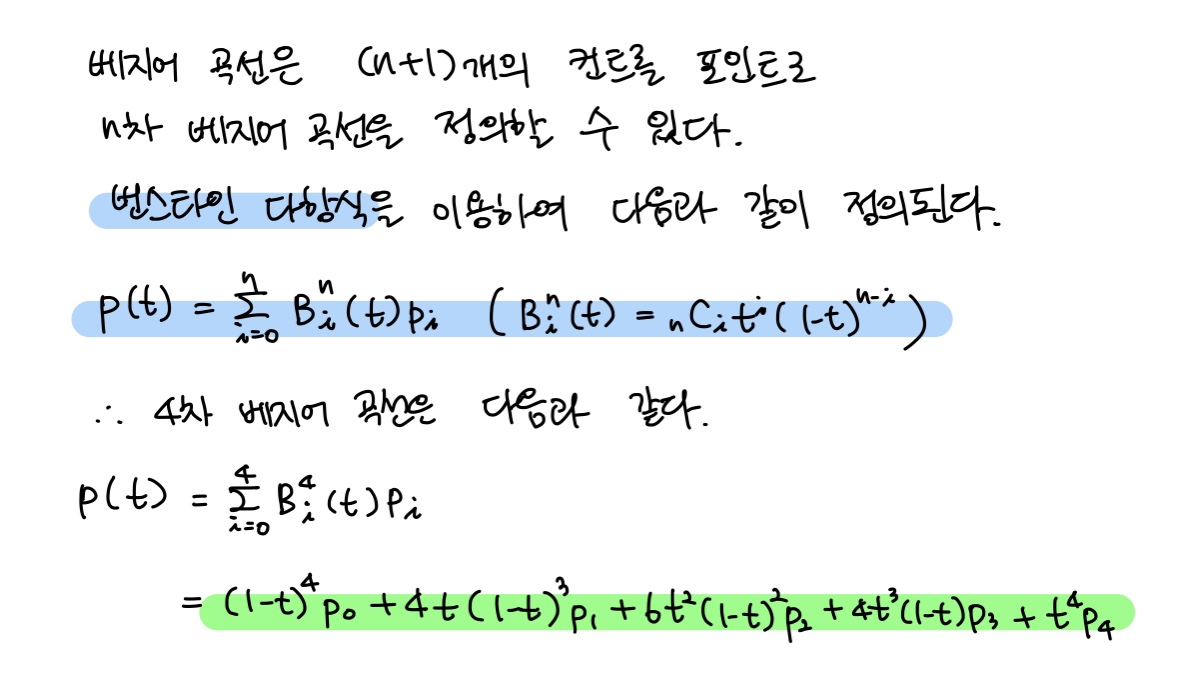 베지어 곡선은 (n+1)개의 컨트롤 포인트로
n차 베지어 곡선을 정의할 수 있다.
번스타인 다항식을 이용하여 다음과 같이 정의된다.
p(t) = ∑ᵢ₌₀ⁿ Bᵢⁿ(t)pᵢ (Bᵢⁿ(t) = ₙCᵢtⁱ(1-t)ⁿ⁻ⁱ)
∴ 4차 베지어 곡선은 다음과 같다.
p(t) = ∑ᵢ₌₀⁴ Bᵢ⁴(t)pᵢ
= (1-t)⁴p₀ + 4t(1-t)³p₁ + 6t²(1-t)²p₂ + 4t³(1-t)p₃ + t⁴p₄